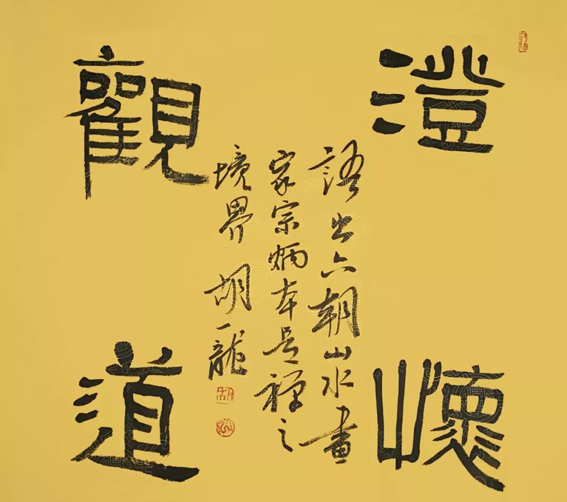 澄懷
觀道
語出六朝山水畫
家宗炳本是禪之
境界 胡一龍